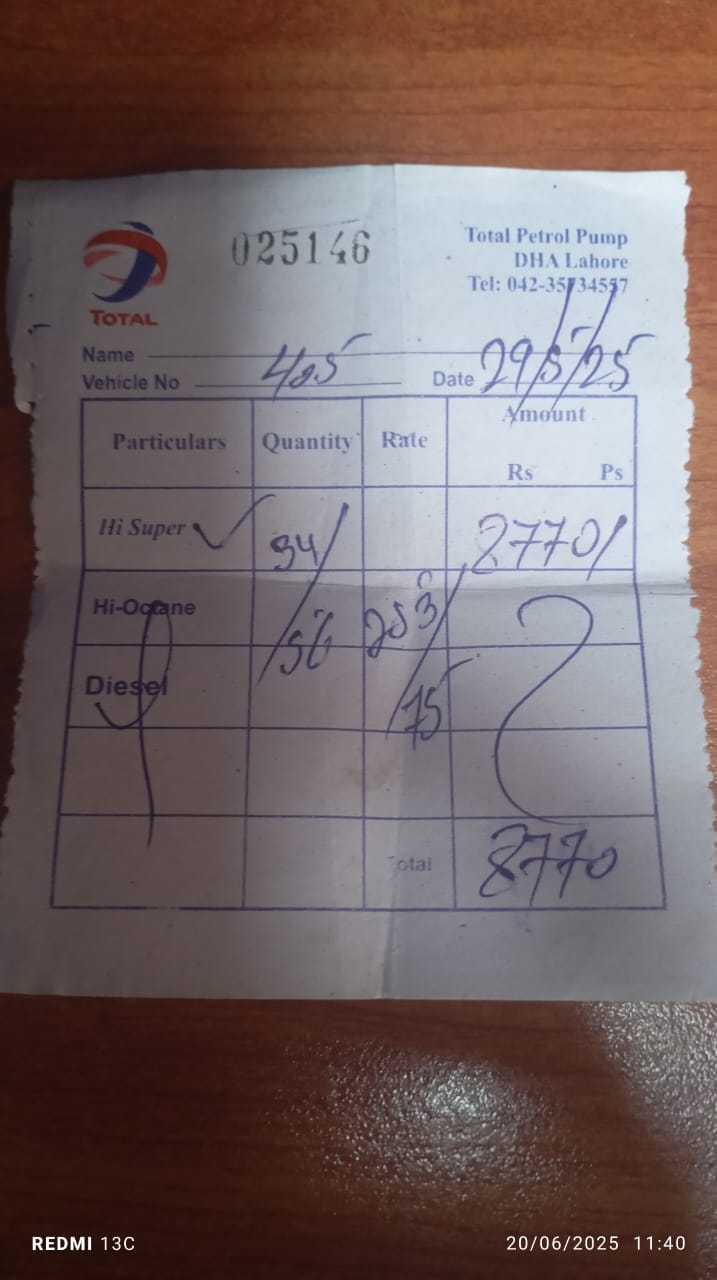 025146
Total Petrol Pump
DHA Lahore
Tel: 042-35734557
TOTAL
Name
Vehicle No 405 Date 29/5/25
Particulars Quantity Rate Amount
Rs Ps
Hi Super ✓ 34/56 253/75 8770/
Hi-Octane
Diesel
Total 8770
REDMI 13C 20/06/2025 11:40